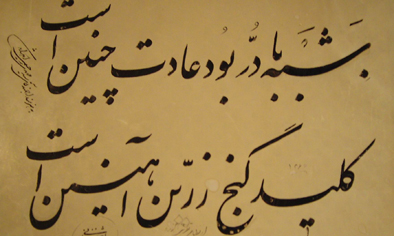 شَبَه با دُر بُود عادت چنین است
کلید گنج زرّین آهنین است